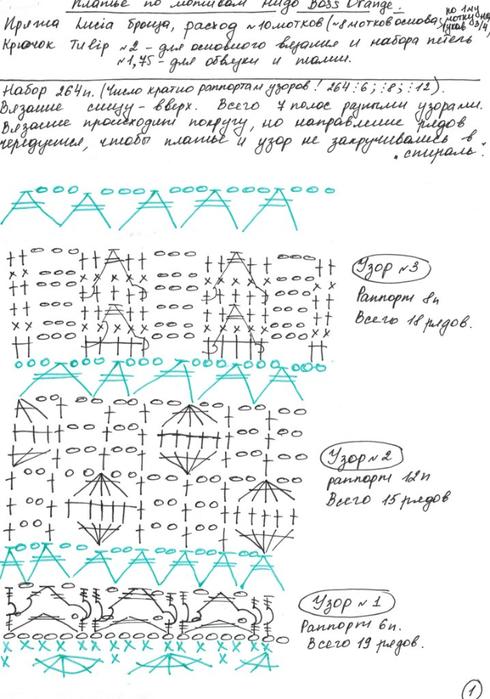 Платье по мотивам Hugo Boss Orange.
Пряжа Lucia Гроща, расход ~10 мотков (~8 мотков основа;
по 1му мотку на рукав 3/4)
Крючок Tulip №2 - для основного вязания и набора петель
№1,75 - для обвязки и талии.
Набор 264п. (Число кратно раппортам узоров! 264:6; :8; :12).
Вязание снизу-вверх. Всего 7 полос разными узорами.
Вязание происходит по кругу, но направление рядов
чередуется, чтобы платье и узор не закручивались в
спираль.
Узор №3
Раппорт 8п
Всего 18 рядов.
Узор №2
раппорт 12п
Всего 15 рядов
Узор №1
Раппорт 6п.
Всего 19 рядов.
1